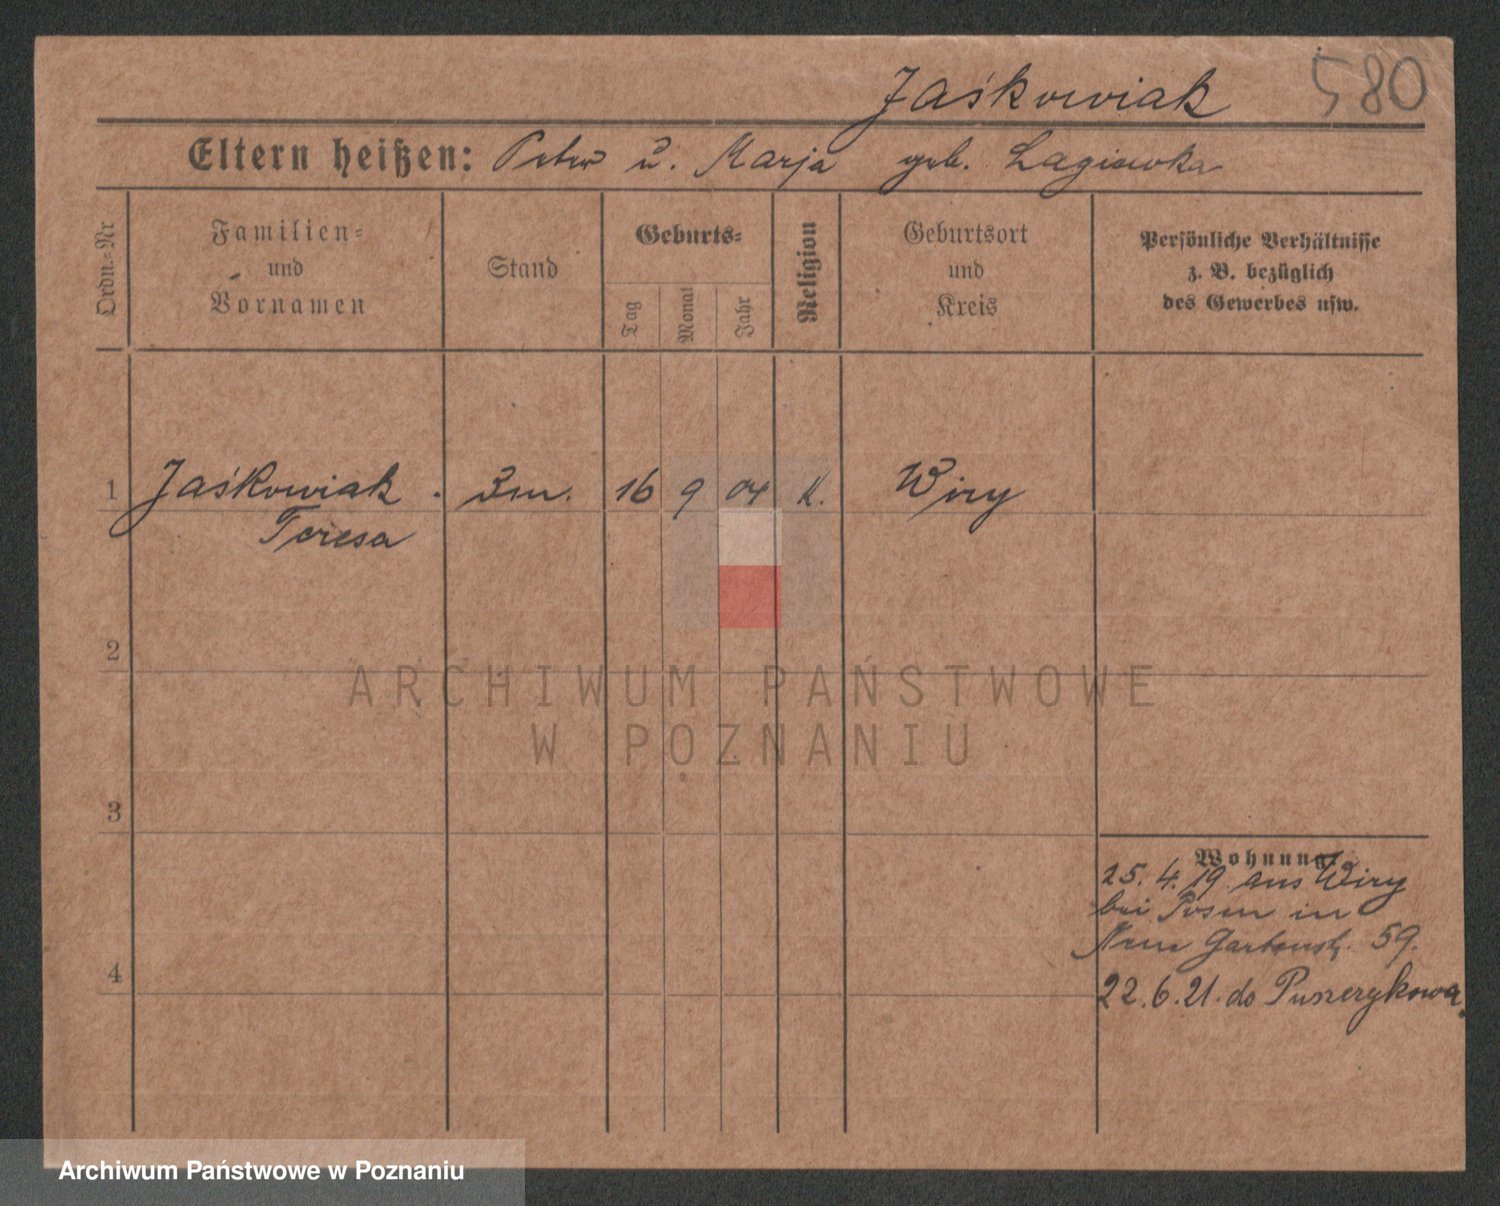 Jaśkowiak 580
Eltern heißen: Peter u. Marja geb. Lagiewka
Ordn.-Nr
Familien-
und
Vornamen
Stand
Geburts-
Tag
Monat
Jahr
Religion
Geburtsort
und
Kreis
Persönliche Verhältnisse
z. B. bezüglich
des Gewerbes usw.
1 Jaśkowiak. 16 9 04 K. Wiry
Teresa
2
ARCHIWUM PAŃSTWOWE
W POZNANIU
3
Wohnung
25. 4. 19. aus Wiry
bei Posen in
Neue Gartenstr. 59.
4
22.6.21. do Puszczykowa.
Archiwum Państwowe w Poznaniu